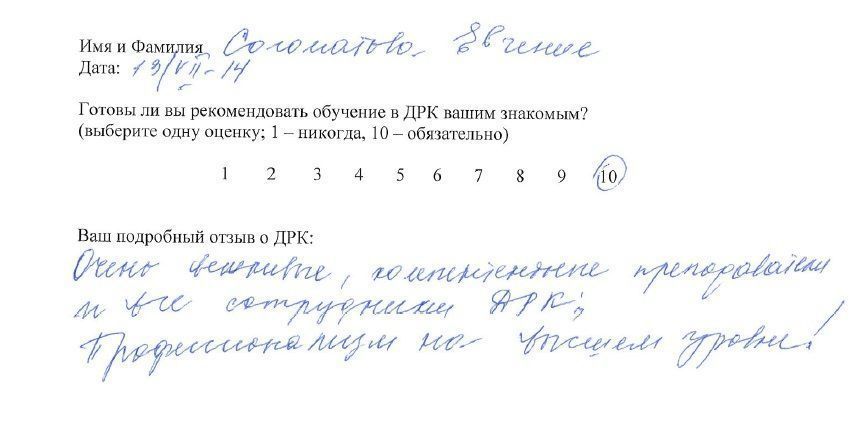 Имя и Фамилия Соломатова Евгение
Дата: 13/VII-14
Готовы ли вы рекомендовать обучение в ДРК вашим знакомым?
(выберите одну оценку; 1 – никогда, 10 – обязательно)
1 2 3 4 5 6 7 8 9 10
Ваш подробный отзыв о ДРК:
Очень вежливые, компетентные преподаватели
и все сотрудники ДРК;
Профессионализм на высшем уровне!